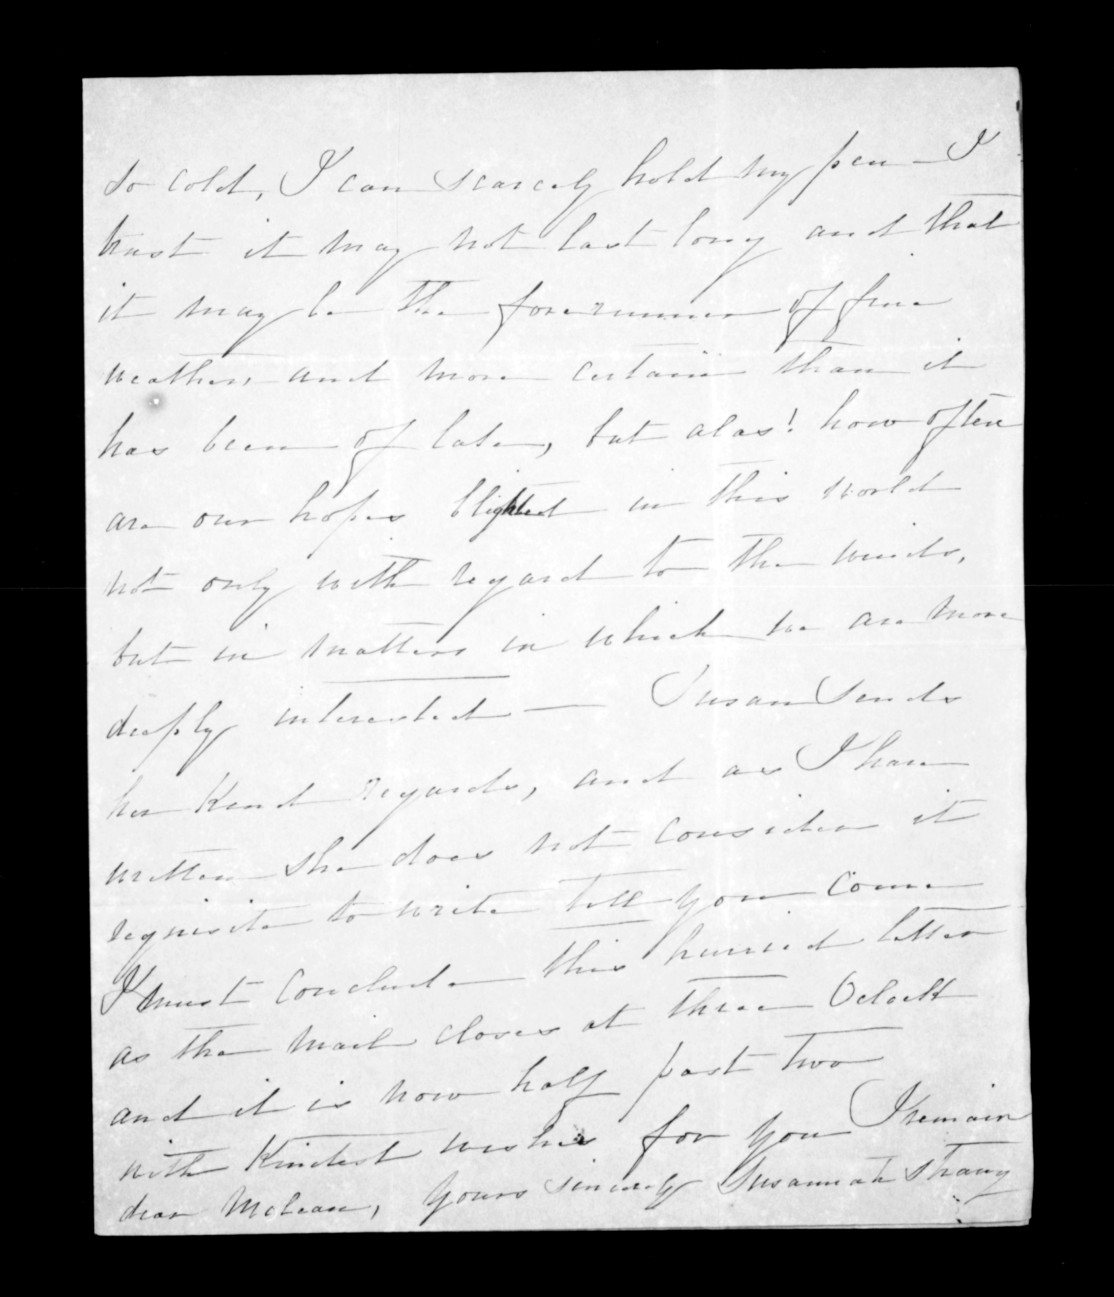 so cold, I can scarcely hold my pen - I
trust it may not last long and that
it may be the forerunner of fine
weather, and more certain than it
has been of late, but alas! how often
are our hopes blighted in this world
not only with regard to the winds,
but in matters in which we are more
deeply interested — Susan sends
her Kind regards, and as I have
written she does not consider it
requisite to write till you come
I must conclude this hurried letter
as the mail closes at three Oclock
and it is now half past two
with Kindest wishes for you I remain
dear McLean, Yours sincerely Susannah Strang